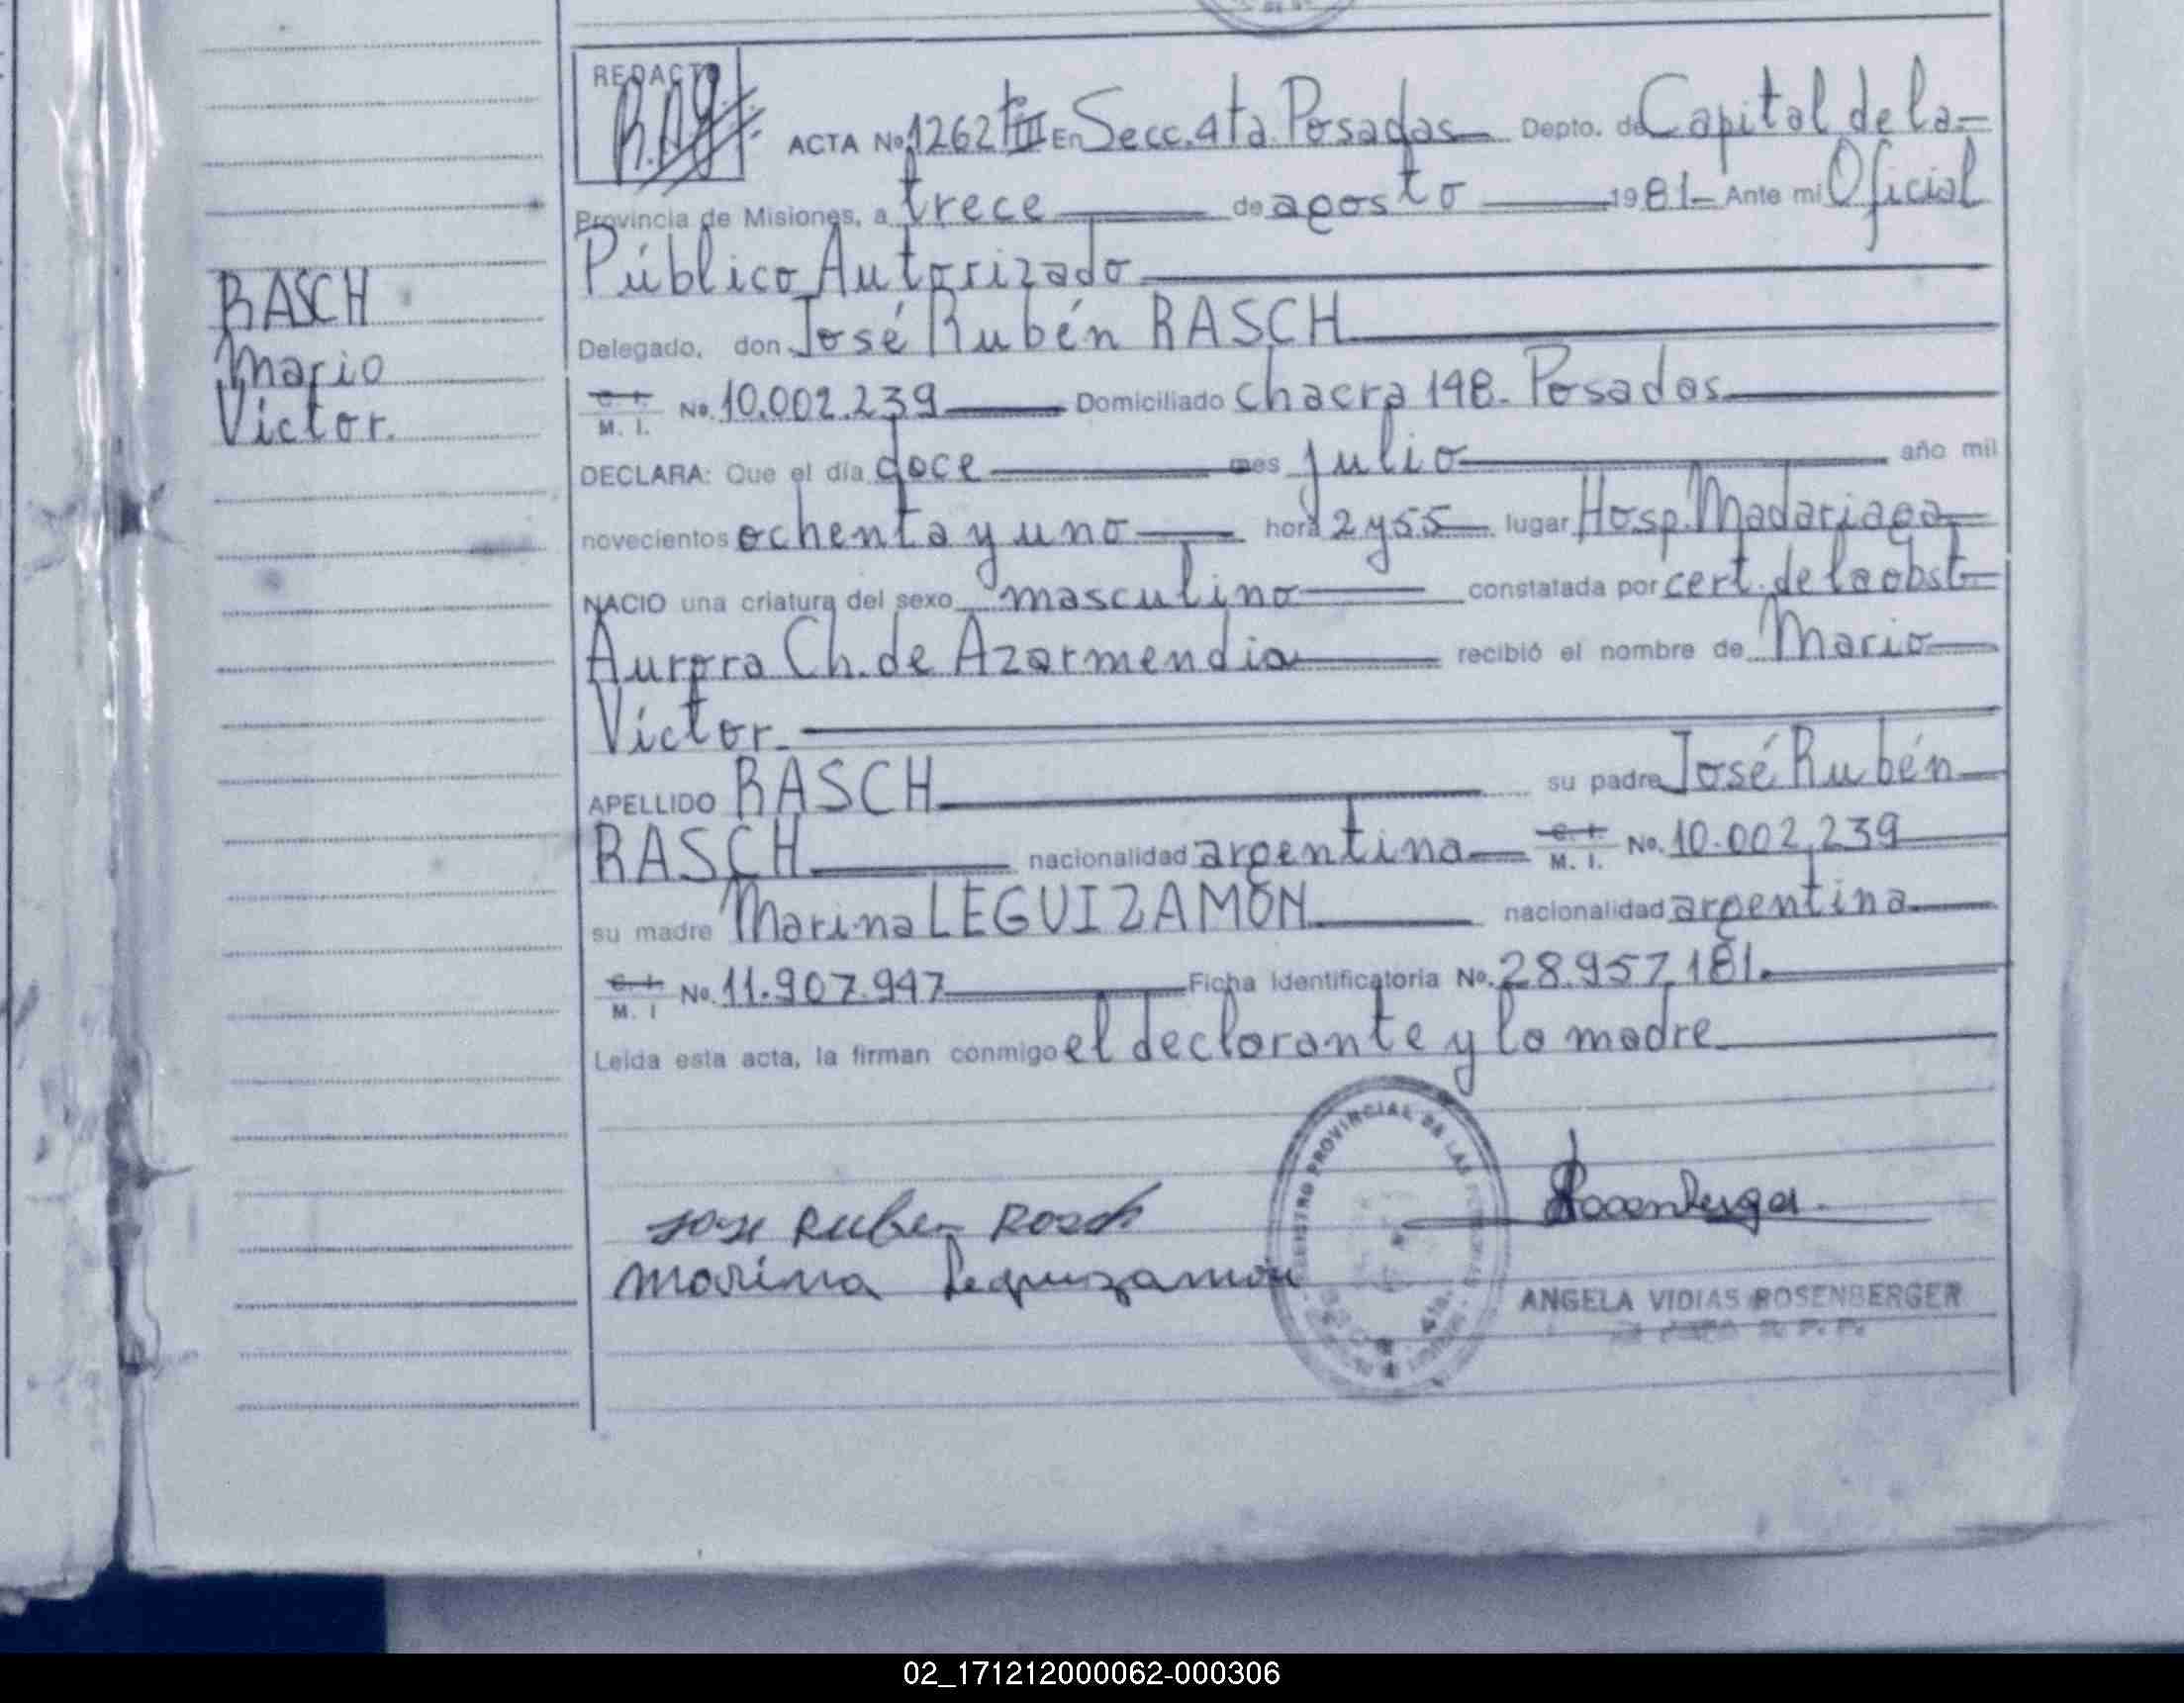 REDACTO
ACTA No. 1262 tºIII En Secc. 4ta. Posadas Depto. de Capital de la
Provincia de Misiones, a trece de agosto 1981 Ante mi Oficial
Público Autorizado
Delegado, don José Rubén RASCH
C. I. M. I. No. 10.002.239 Domiciliado chacra 148. Posadas
DECLARA: Que el día doce mes julio año mil
novecientos ochenta y uno hora 2 y 55 lugar Hosp. Madariaga
NACIO una criatura del sexo masculino constatada por cert. de la obst
Aurora Ch. de Azarmendia recibió el nombre de Mario
Víctor.
APELLIDO RASCH su padre José Rubén
RASCH nacionalidad argentina C. I. M. I. No. 10.002.239
su madre Marina LEGUIZAMÓN nacionalidad argentina
C. I. M. I No. 11.907.947 Ficha Identificatoria No. 28.957.181.
Leída esta acta, la firman conmigo el declarante y la madre
RASCH
Mario
Víctor.
REGISTRO PROVINCIAL DE LAS PERSONAS
Jose Ruben Rasch
Marina Leguizamón
Rosenberger
ANGELA VIDIAS ROSENBERGER
R. P. P.
02_171212000062-000306